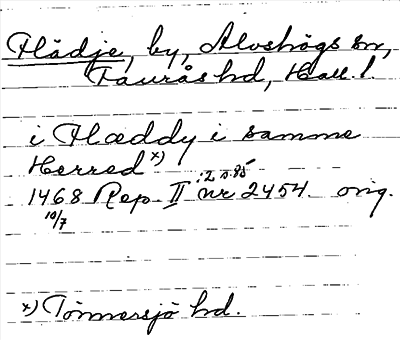 Flädje, by, Alvshögs sn,
Faurås hd, Hall. l.
i Flæddy i samme
Herred x)
:2 s. 85
1468 Rep. II nr 2454. orig.
10/7
x) Tönnersjö hd.